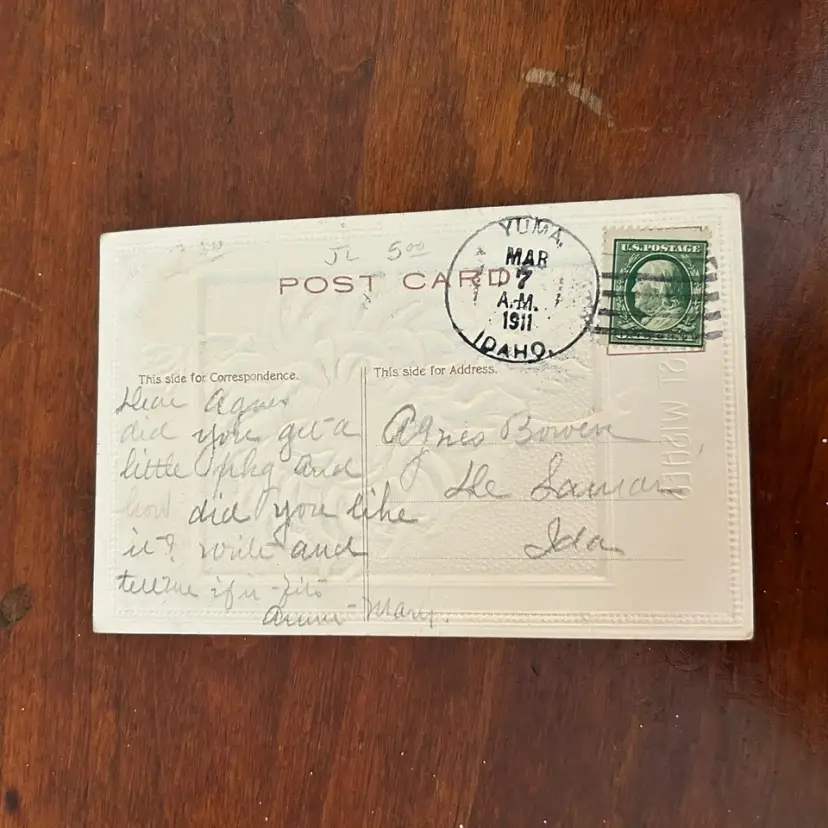 JL 5.00
POST CARD
YUMA,
MAR
7
A.M.
1911
IDAHO.
U.S. POSTAGE
This side for Correspondence.
This side for Address.
Dear Agnes
did you get a
little pkg and
how did you like
it? write and
tell me if it fits
Mary.
Agnes Bowen
De Lamar
Ida